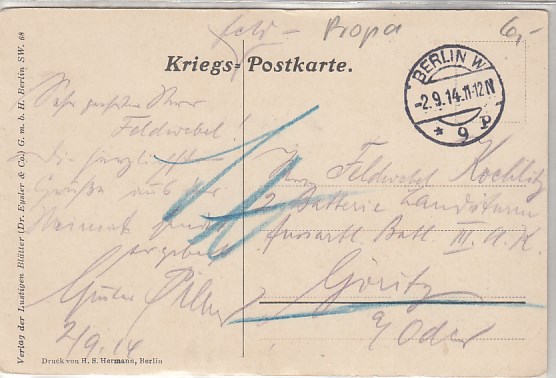 Feld- Propa 6,-
Kriegs-Postkarte.
BERLIN W
-2.9.14.11-12N
* 9 P
Sehr geehrter Herr
Feldwebel!
Die herzlichsten
Grüße aus der
Heimat sendet
ergebenst
2/9.14
Herrn Feldwebel Kochlitz
2 Batterie Landsturm
Fussartl. Batl. III. A. K.
Göritz
a/Oder
Verlag der Lustigen Blätter (Dr. Eysler & Co.) G. m. b. H. Berlin SW. 68
Druck von H. S. Hermann, Berlin